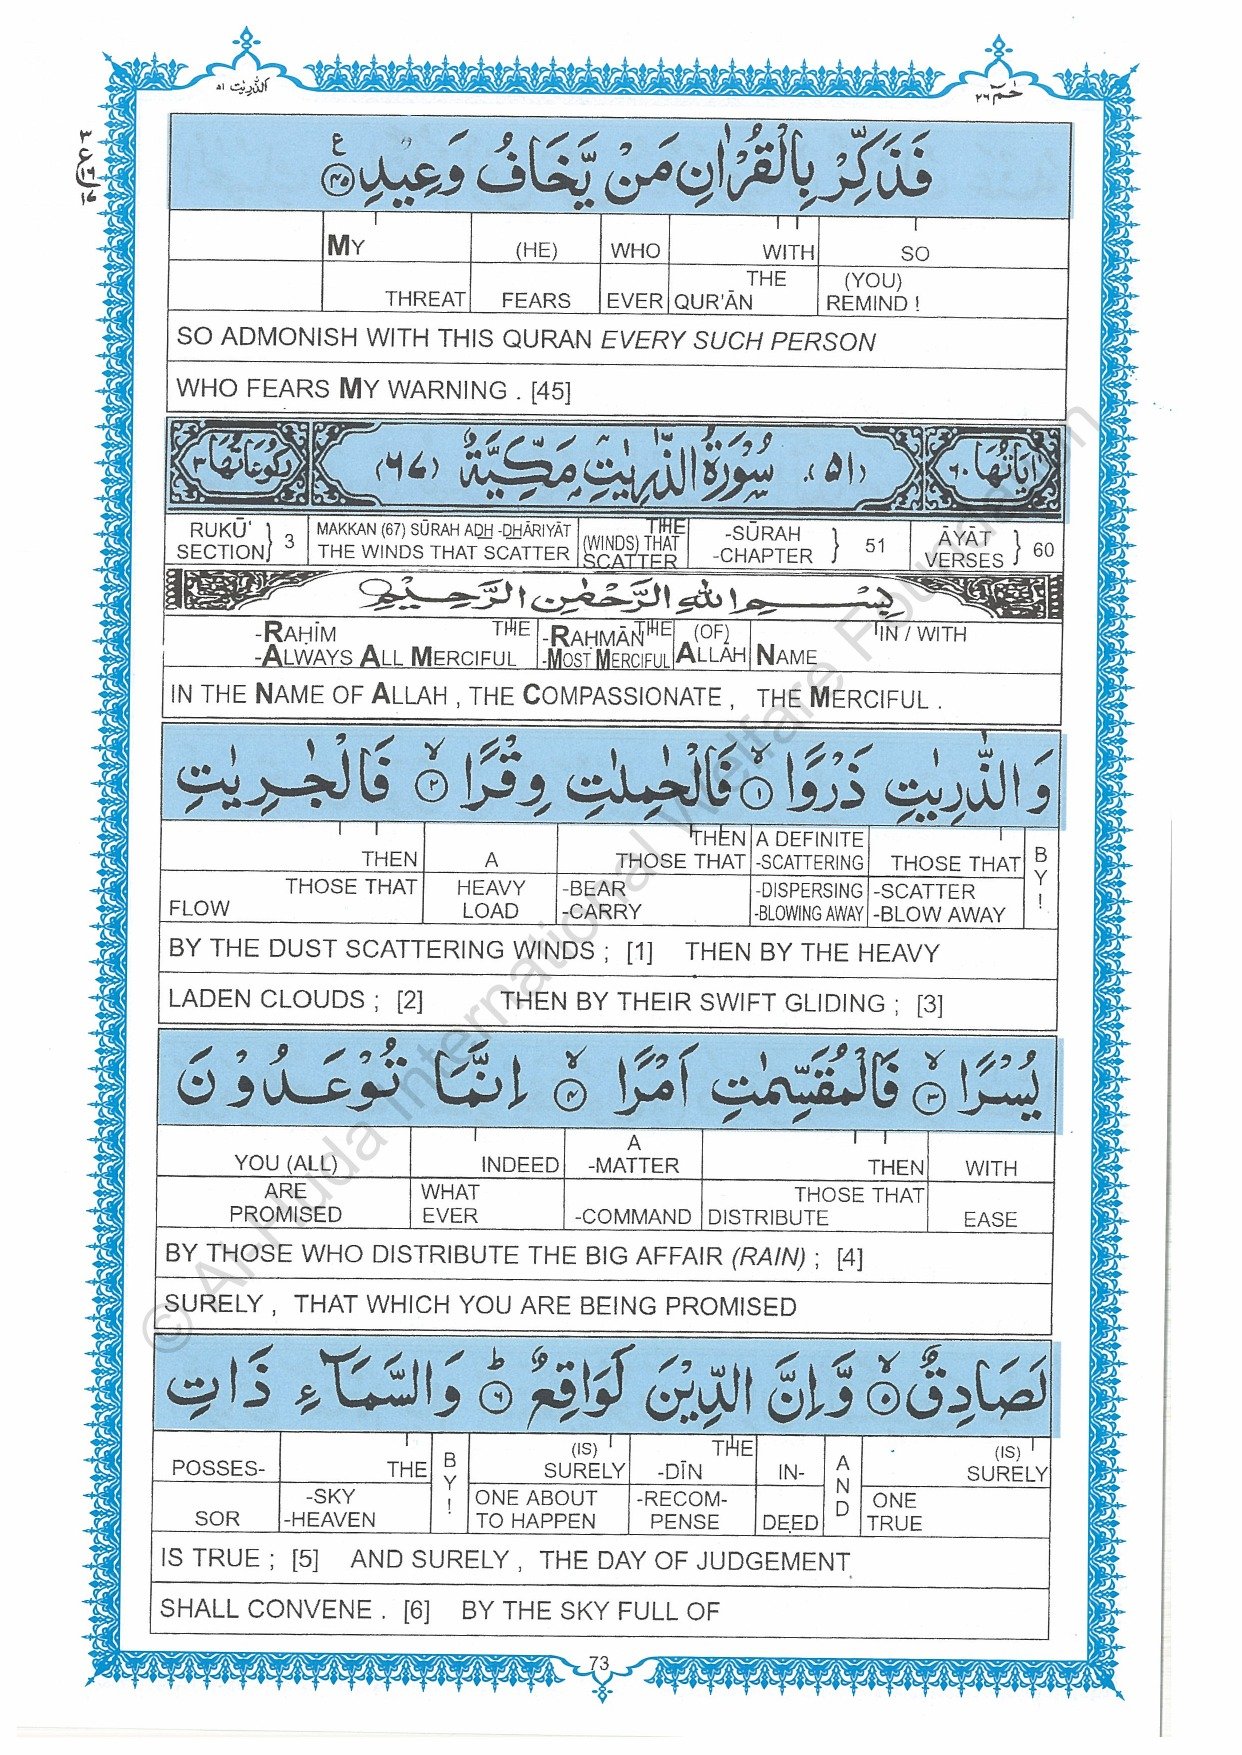 الذّٰرِيٰت ٥١
حٰمٓ ٢٦
٣
ع
١٦
١٧
فَذَكِّرْ بِالْقُرْاٰنِ مَنْ يَّخَافُ وَعِيْدِ ﴿٤٥﴾ ع
MY (HE) WHO WITH SO
THREAT FEARS EVER THE QUR'ĀN (YOU) REMIND !
SO ADMONISH WITH THIS QURAN EVERY SUCH PERSON
WHO FEARS MY WARNING . [45]
اٰيَاتُهَا ٦٠ (٥١) سُوْرَةُ الذّٰرِيٰتِ مَكِّيَّةٌ (٦٧) رُكُوْعَاتُهَا ٣
RUKŪ' SECTION } 3 MAKKAN (67) SŪRAH ADH -DHĀRIYĀT THE WINDS THAT SCATTER THE (WINDS) THAT SCATTER -SŪRAH -CHAPTER } 51 ĀYĀT VERSES } 60
بِسْمِ اللهِ الرَّحْمٰنِ الرَّحِيْمِ
-RAHĪM THE -RAHMĀN THE (OF) IN / WITH
-ALWAYS ALL MERCIFUL -MOST MERCIFUL ALLĀH NAME
IN THE NAME OF ALLAH , THE COMPASSIONATE , THE MERCIFUL .
وَالذّٰرِيٰتِ ذَرْوًا ﴿١﴾ فَالْحٰمِلٰتِ وِقْرًا ﴿٢﴾ فَالْجٰرِيٰتِ
THEN A THEN THOSE THAT A DEFINITE -SCATTERING THOSE THAT BY!
THOSE THAT FLOW HEAVY LOAD -BEAR -CARRY -DISPERSING -BLOWING AWAY -SCATTER -BLOW AWAY
BY THE DUST SCATTERING WINDS ; [1] THEN BY THE HEAVY
LADEN CLOUDS ; [2] THEN BY THEIR SWIFT GLIDING ; [3]
يُسْرًا ﴿٣﴾ فَالْمُقَسِّمٰتِ اَمْرًا ﴿٤﴾ اِنَّمَا تُوْعَدُوْنَ
YOU (ALL) INDEED A -MATTER THEN WITH
ARE PROMISED WHAT EVER -COMMAND THOSE THAT DISTRIBUTE EASE
BY THOSE WHO DISTRIBUTE THE BIG AFFAIR (RAIN) ; [4]
SURELY , THAT WHICH YOU ARE BEING PROMISED
لَصَادِقٌ ﴿٥﴾ وَّاِنَّ الدِّيْنَ لَوَاقِعٌ ﴿٦﴾ ط وَالسَّمَآءِ ذَاتِ
POSSES- THE BY! (IS) SURELY THE -DĪN IN- AND (IS) SURELY
SOR -SKY -HEAVEN ONE ABOUT TO HAPPEN -RECOM- PENSE DEED ONE TRUE
IS TRUE ; [5] AND SURELY , THE DAY OF JUDGEMENT
SHALL CONVENE . [6] BY THE SKY FULL OF
73
© Al-Huda International Welfare Foundation